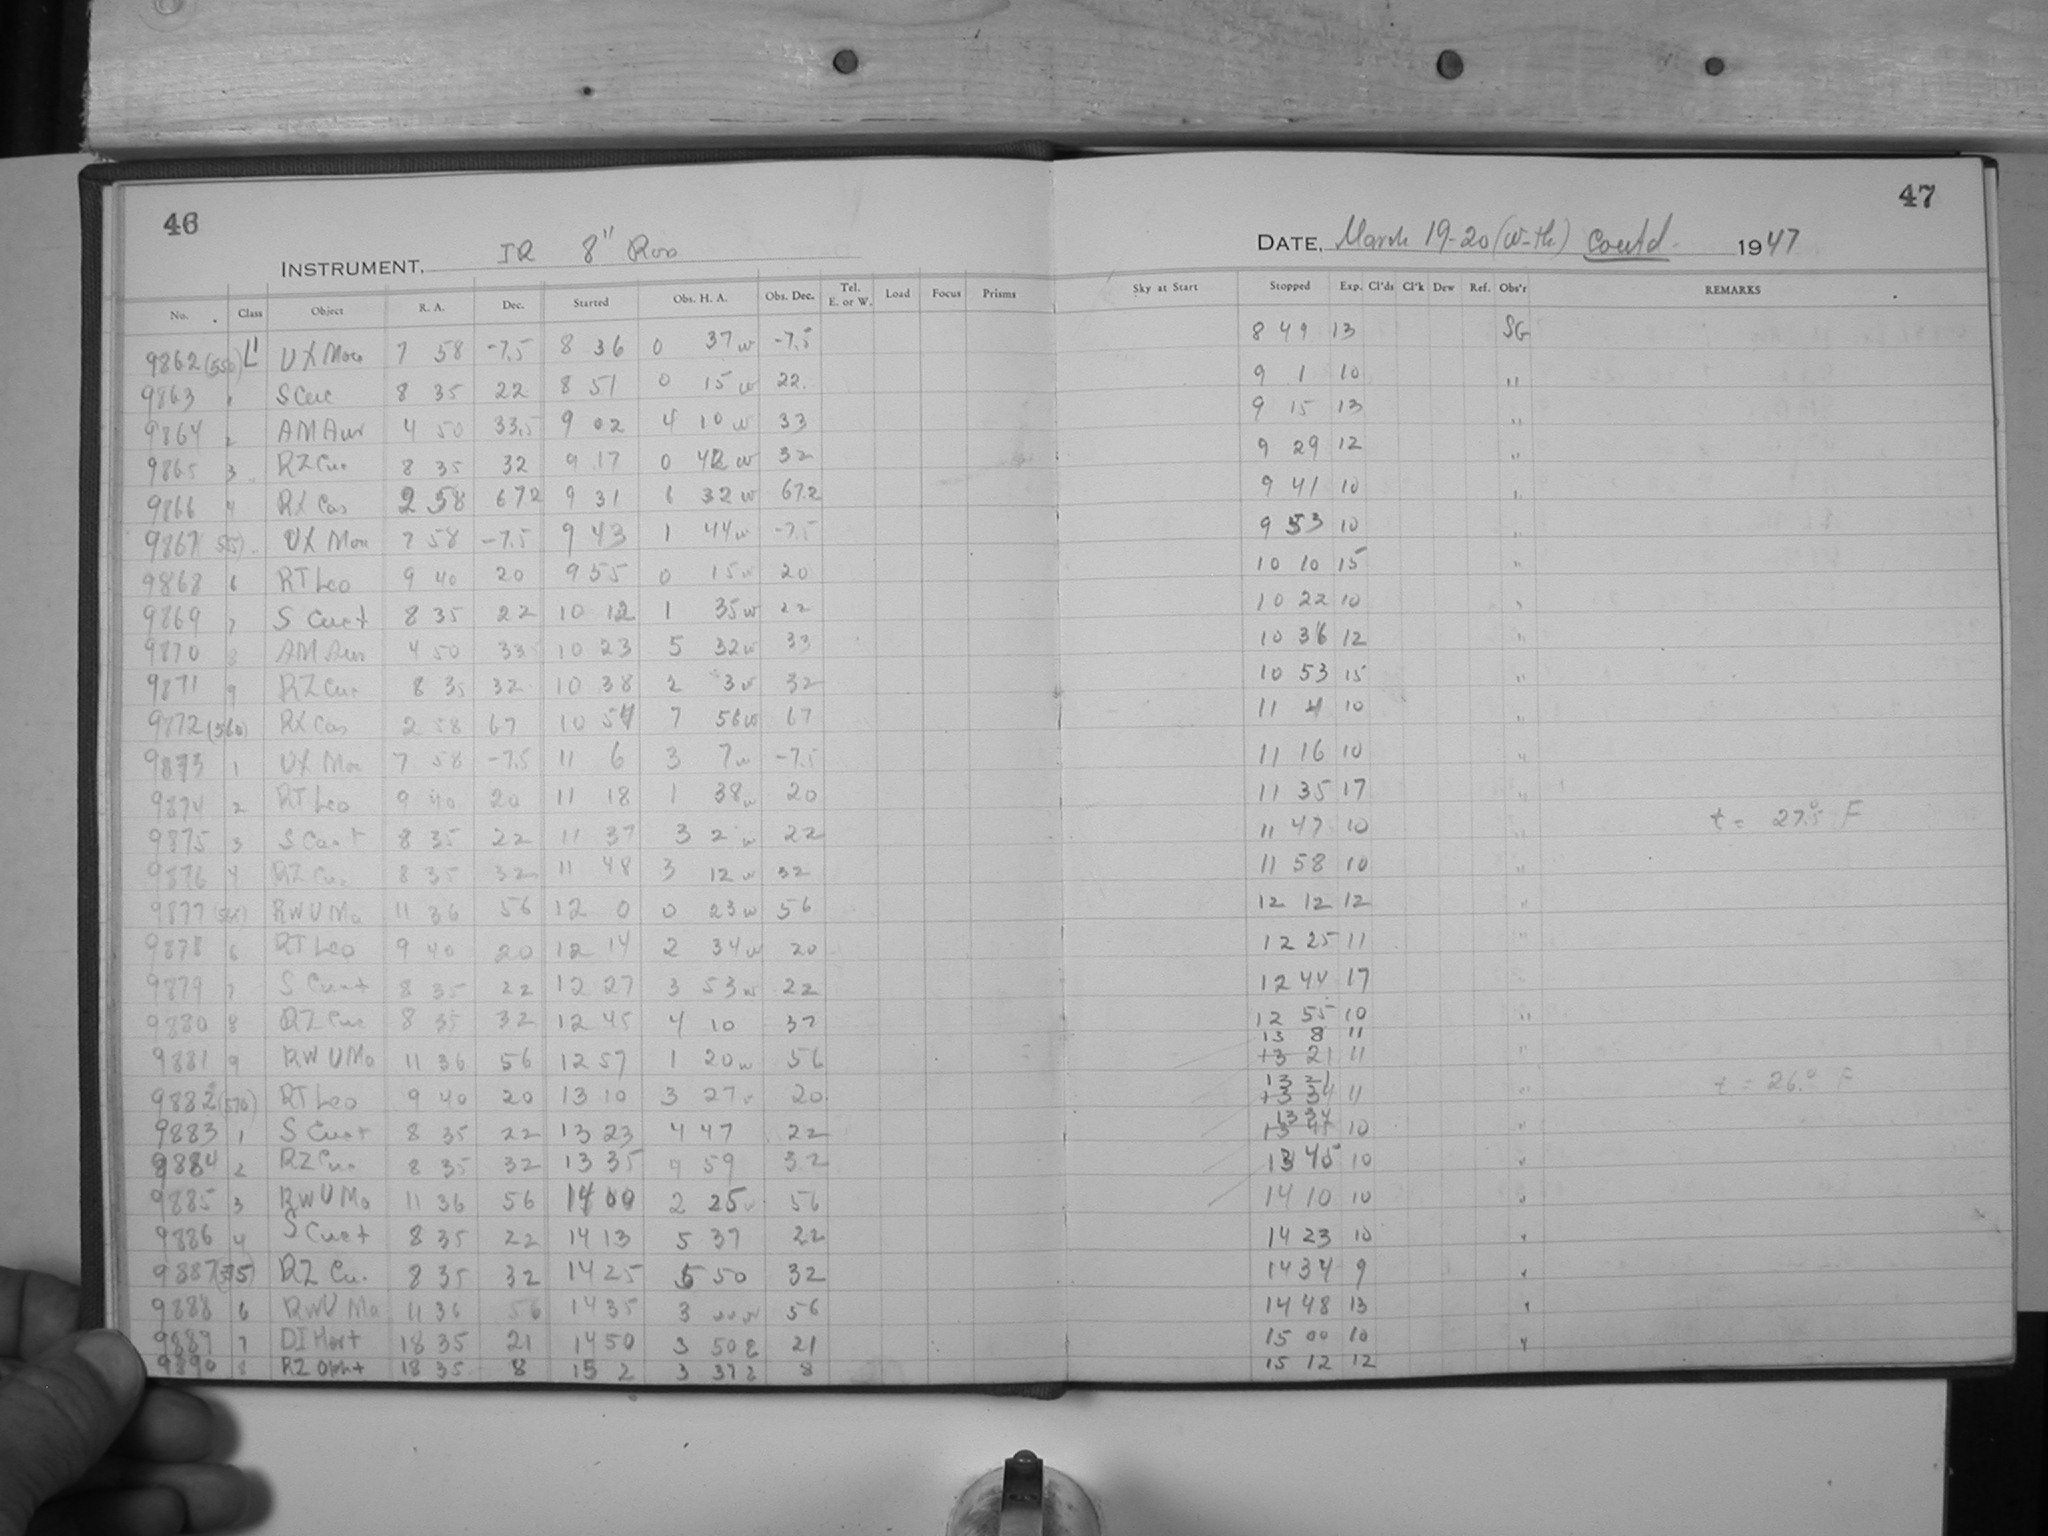 46
INSTRUMENT. IR 8" Ross
No. Class Object R. A. Dec. Started Obs. H. A. Obs. Dec. Tel. E. or W. Load Focus Prisms
9862 (550) L' UX Mon 7 58 -7.5 8 36 0 37 w -7.5
9863 1 S Cnc 8 35 22 8 51 0 15 w 22
9864 2 AM Aur 4 50 33.5 9 02 4 10 w 33
9865 3 RZ Cnc 8 35 32 9 17 0 42 w 32
9866 4 RX Cas 2 58 67.2 9 31 6 32 w 67.2
9867 (555) UX Mon 7 58 -7.5 9 43 1 44 w -7.5
9868 6 RT Leo 9 40 20 9 55 0 15 w 20
9869 7 S Cnct 8 35 22 10 12 1 35 w 22
9870 8 AM Aur 4 50 33.5 10 23 5 32 w 33
9871 9 RZ Cnc 8 35 32 10 38 2 3 w 32
9872 (560) RX Cas 2 58 67 10 54 7 56 w 67
9873 1 UX Mon 7 58 -7.5 11 6 3 7 w -7.5
9874 2 RT Leo 9 40 20 11 18 1 38 w 20
9875 3 S Cnct 8 35 22 11 37 3 2 w 22
9876 4 RZ Cnc 8 35 32 11 48 3 12 w 32
9877 (565) RW UMa 11 36 56 12 0 0 23 w 56
9878 6 RT Leo 9 40 20 12 14 2 34 w 20
9879 7 S Cnct 8 35 22 12 27 3 53 w 22
9880 8 RZ Cnc 8 35 32 12 45 4 10 32
9881 9 RW UMa 11 36 56 12 57 1 20 w 56
9882 (570) RT Leo 9 40 20 13 10 3 27 w 20
9883 1 S Cnct 8 35 22 13 23 4 47 22
9884 2 RZ Cnc 8 35 32 13 35 4 59 32
9885 3 RW UMa 11 36 56 14 00 2 25 w 56
9886 4 S Cnct 8 35 22 14 13 5 37 22
9887 (575) RZ Cn. 8 35 32 14 25 5 50 32
9888 6 RW UMa 11 36 56 14 35 3 00 w 56
9889 7 DI Hert 18 35 21 14 50 3 50 E 21
9890 8 RZ Opht 18 35 8 15 2 3 37 E 8
47
DATE, March 19-20 (W-th) contd. 1947
Sky at Start Stopped Exp. Cl'ds Cl'k Dew Ref. Obs'r REMARKS
8 49 13 SG
9 1 10 "
9 15 13 "
9 29 12 "
9 41 10 "
9 53 10 "
10 10 15 "
10 22 10 "
10 36 12 "
10 53 15 "
11 4 10 "
11 16 10 "
11 35 17 "
11 47 10 " t = 27.5° F
11 58 10 "
12 12 12 "
12 25 11 "
12 44 17 "
12 55 10 "
13 8 11
13 21 11 "
13 21
13 34 11 " t = 26.° F
13 34
13 45 10 "
13 45 10 "
14 10 10 "
14 23 10 "
14 34 9 "
14 48 13 "
15 00 10 "
15 12 12